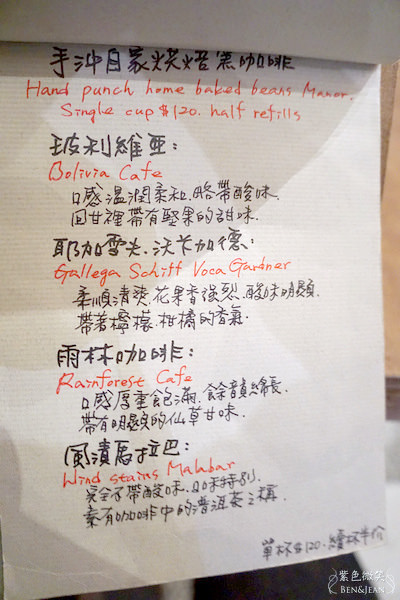 手沖自家烘焙黑咖啡
Hand punch home baked beans Manor.
Single cup $120. half refills
玻利維亞:
Bolivia Cafe
口感溫潤柔和.略帶酸味.
回甘裡帶有堅果的甜味.
耶加雪夫.沃卡加德:
Gallega Schiff Voca Gardner
柔順清淡.花果香強烈.酸味明顯.
帶著檸檬.柑橘的香氣.
雨林咖啡:
Rainforest Cafe
口感厚重飽滿.餘韻綿長.
帶有明顯的仙草甘味.
風漬馬拉巴:
Wind stains Malabar
完全不帶酸味.口味特別.
素有咖啡中的普洱茶之稱.
單杯$120.續杯半价
紫色微笑
BEN&JEAN